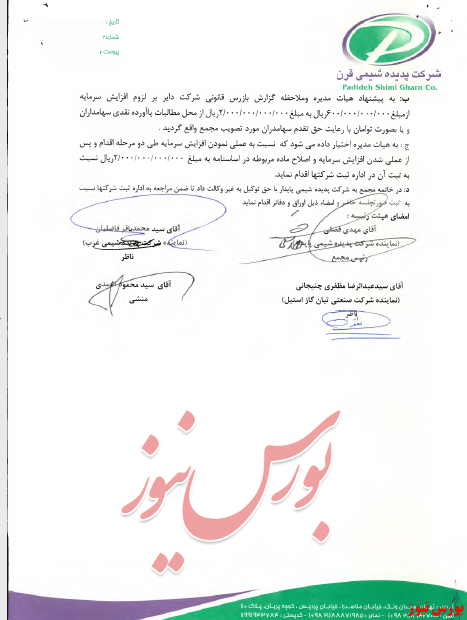 تاریخ:
شماره:
پیوست:
شرکت پدیده شیمی قرن
Padideh Shimi Gharn Co.
ب: به پیشنهاد هیات مدیره وملاحظه گزارش بازرس قانونی شرکت دایر بر لزوم افزایش سرمایه
ازمبلغ ۶۰۰/۰۰۰/۰۰۰/۰۰۰ریال به مبلغ ۲/۰۰۰/۰۰۰/۰۰۰/۰۰۰ریال از محل مطالبات یاآورده نقدی سهامداران
و یا بصورت توامان با رعایت حق تقدم سهامداران مورد تصویب مجمع واقع گردید .
ج : به هیات مدیره اختیار داده می شود که نسبت به عملی نمودن افزایش سرمایه طی دو مرحله اقدام و پس
از عملی شدن افزایش سرمایه و اصلاح ماده مربوطه در اساسنامه به مبلغ ۲/۰۰۰/۰۰۰/۰۰۰/۰۰۰ریال نسبت
به ثبت آن در اداره ثبت شرکتها اقدام نماید.
د: در خاتمه مجمع به شرکت پدیده شیمی پایدار با حق توکیل به غیر وکالت داد تا ضمن مراجعه به اداره ثبت شرکتها نسبت
به ثبت صورتجلسه حاضر و امضاء ذیل اوراق و دفاتر اقدام نماید
امضای هیئت رئیسه :
آقای مهدی فضلی
(نماینده شرکت پدیده شیمی پایدار)
رئیس مجمع
آقای سید محمدباقر فاضلیان
(نماینده شرکت پدیده شیمی غرب)
ناظر
آقای سیدعبدالرضا مظفری چنیجانی
(نماینده شرکت صنعتی تیان گاز استیل)
ناظر
آقای سید محمود
منشی
بورس نیوز
بورس نیوز